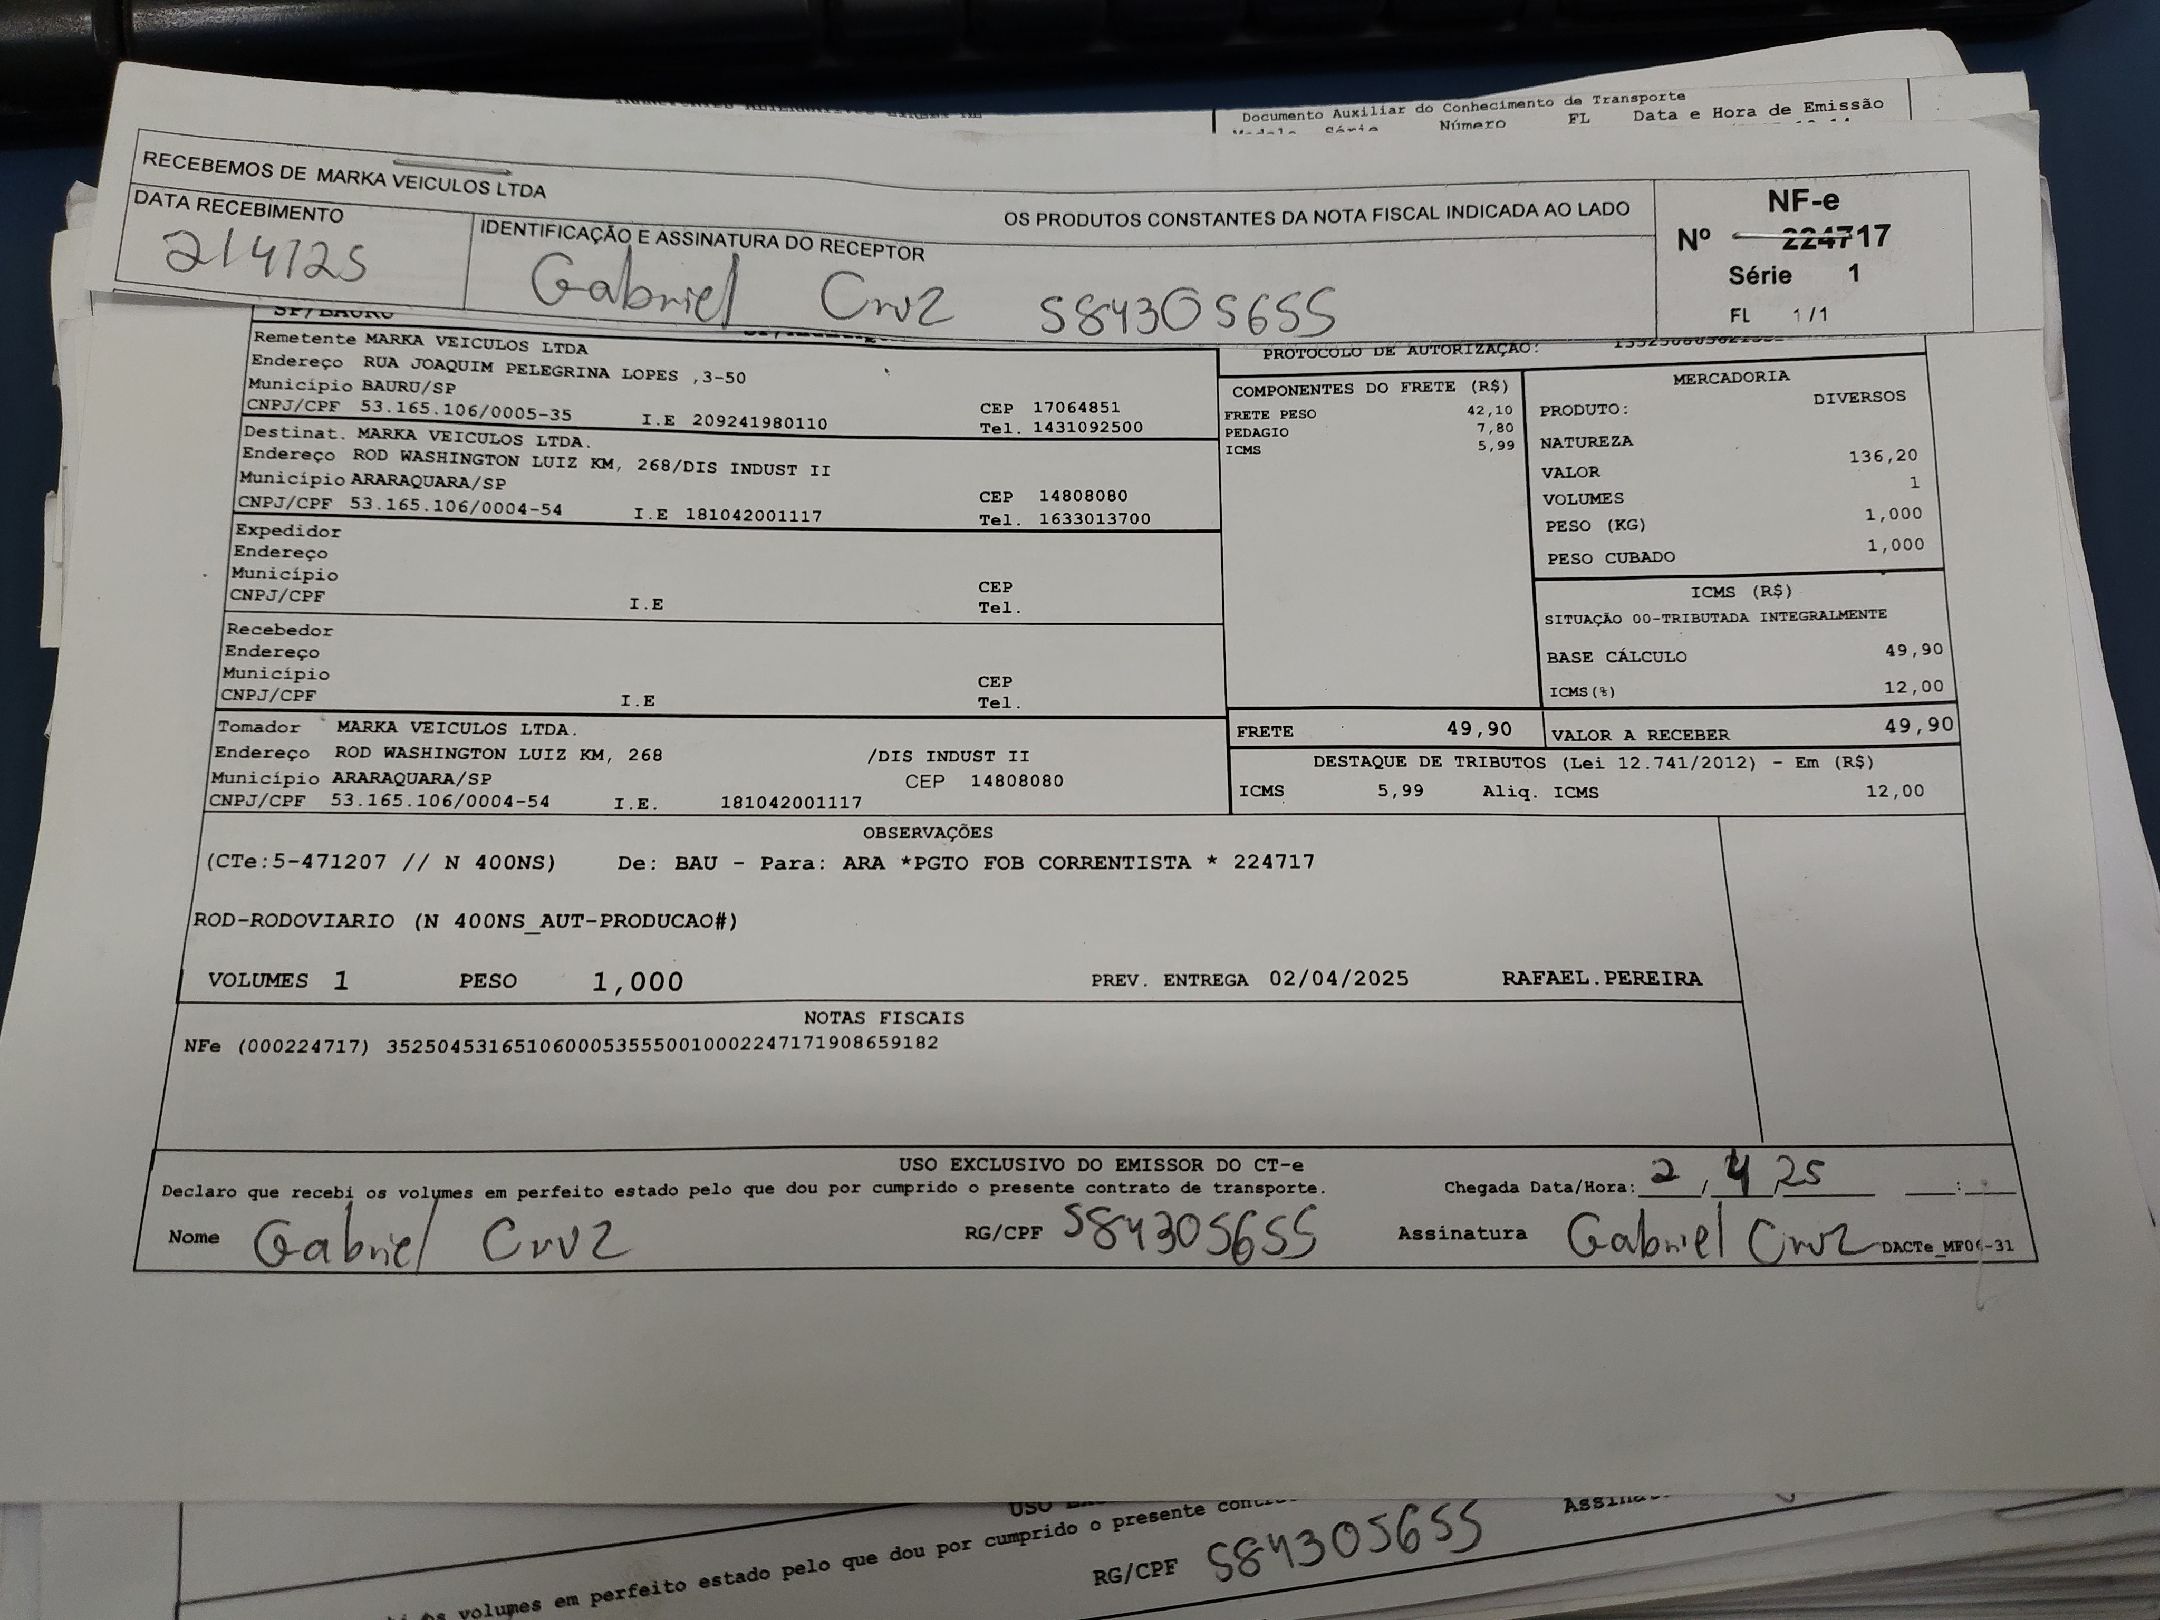 Documento Auxiliar do Conhecimento de Transporte
Número FL Data e Hora de Emissão
RECEBEMOS DE MARKA VEICULOS LTDA
OS PRODUTOS CONSTANTES DA NOTA FISCAL INDICADA AO LADO
DATA RECEBIMENTO
2/4/25
IDENTIFICAÇÃO E ASSINATURA DO RECEPTOR
Gabriel Cruz 584305655
NF-e
Nº 224717
Série 1
FL 1/1
SP/BAURU
Remetente MARKA VEICULOS LTDA
Endereço RUA JOAQUIM PELEGRINA LOPES ,3-50
Município BAURU/SP
CEP 17064851
CNPJ/CPF 53.165.106/0005-35 I.E 209241980110
Tel. 1431092500
Destinat. MARKA VEICULOS LTDA.
Endereço ROD WASHINGTON LUIZ KM, 268/DIS INDUST II
Município ARARAQUARA/SP
CEP 14808080
CNPJ/CPF 53.165.106/0004-54 I.E 181042001117
Tel. 1633013700
Expedidor
Endereço
Município
CEP
CNPJ/CPF I.E
Tel.
Recebedor
Endereço
Município
CEP
CNPJ/CPF I.E
Tel.
Tomador MARKA VEICULOS LTDA.
Endereço ROD WASHINGTON LUIZ KM, 268 /DIS INDUST II
Município ARARAQUARA/SP CEP 14808080
CNPJ/CPF 53.165.106/0004-54 I.E. 181042001117
PROTOCOLO DE AUTORIZAÇÃO:
COMPONENTES DO FRETE (R$)
FRETE PESO 42,10
PEDAGIO 7,80
ICMS 5,99
MERCADORIA
PRODUTO: DIVERSOS
NATUREZA
VALOR 136,20
VOLUMES 1
PESO (KG) 1,000
PESO CUBADO 1,000
ICMS (R$)
SITUAÇÃO 00-TRIBUTADA INTEGRALMENTE
BASE CÁLCULO 49,90
ICMS(%) 12,00
FRETE 49,90 VALOR A RECEBER 49,90
DESTAQUE DE TRIBUTOS (Lei 12.741/2012) - Em (R$)
ICMS 5,99 Aliq. ICMS 12,00
OBSERVAÇÕES
(CTe:5-471207 // N 400NS) De: BAU - Para: ARA *PGTO FOB CORRENTISTA * 224717
ROD-RODOVIARIO (N 400NS_AUT-PRODUCAO#)
VOLUMES 1 PESO 1,000 PREV. ENTREGA 02/04/2025 RAFAEL.PEREIRA
NOTAS FISCAIS
NFe (000224717) 35250453165106000535550010002247171908659182
USO EXCLUSIVO DO EMISSOR DO CT-e
Declaro que recebi os volumes em perfeito estado pelo que dou por cumprido o presente contrato de transporte. Chegada Data/Hora: 2 / 4 / 25 :
Nome Gabriel Cruz RG/CPF 584305655 Assinatura Gabriel Cruz DACTe_MF06-31
USO
os volumes em perfeito estado pelo que dou por cumprido o presente
RG/CPF 584305655